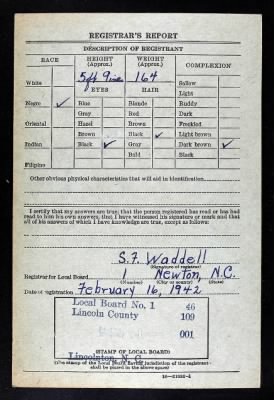 REGISTRAR'S REPORT
DESCRIPTION OF REGISTRANT
RACE HEIGHT (Approx.) WEIGHT (Approx.) COMPLEXION
White 5 ft 9 ine 164 Sallow
EYES HAIR Light
Negro ✓ Blue Blonde Ruddy
Gray Red Dark
Oriental Hazel Brown Freckled
Brown Black ✓ Light brown
Indian Black ✓ Gray Dark brown ✓
Bald Black
Filipino
Other obvious physical characteristics that will aid in identification
I certify that my answers are true; that the person registered has read or has had
read to him his own answers; that I have witnessed his signature or mark and that
all of his answers of which I have knowledge are true, except as follows:
S.F. Waddell
(Signature of registrar)
Registrar for Local Board 1 Newton, N.C.
(Number) (City or county) (State)
Date of registration February 16, 1942
Local Board No. 1 46
Lincoln County 109
001
Lincolnton, N. C.
(STAMP OF LOCAL BOARD)
(The stamp of the Local Board having jurisdiction of the registrant
shall be placed in the above space)